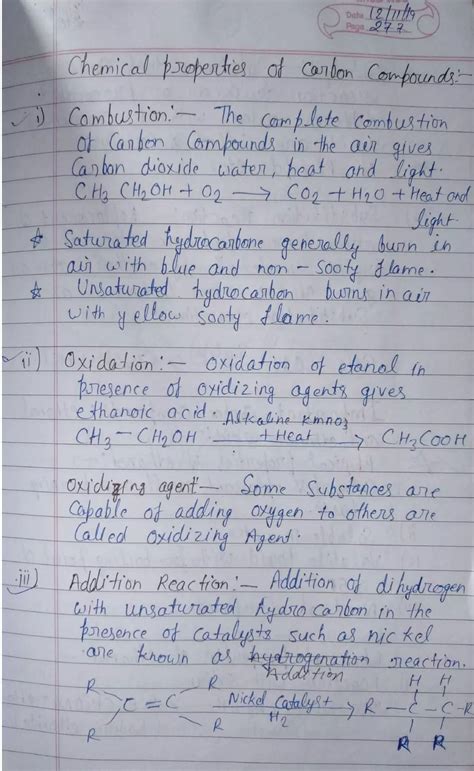 Date 12/11/19
Page 277
Chemical properties of Carbon Compounds:-
i) Combustion:- The complete combustion
of Carbon Compounds in the air gives
Carbon dioxide water, heat and light.
CH3 CH2OH + O2 → CO2 + H2O + Heat and
light.
☆ Saturated hydrocarbone generally burn in
air with blue and non-sooty flame.
☆ Unsaturated hydrocarbon burns in air
with yellow sooty flame.
ii) Oxidation:- Oxidation of etanol in
presence of oxidizing agents gives
ethanoic acid.
Alkaline Kmno3
CH3-CH2OH → CH3COOH
+ Heat
Oxidizing agent- Some Substances are
capable of adding oxygen to others are
Called Oxidizing Agent.
iii) Addition Reaction:- Addition of dihydrogen
with unsaturated hydrocarbon in the
presence of catalysts such as nickel
are known as hydrogenation reaction.
Addition
R R H H
C=C Nickel Catalyst → R-C-C-R
H2
R R R R